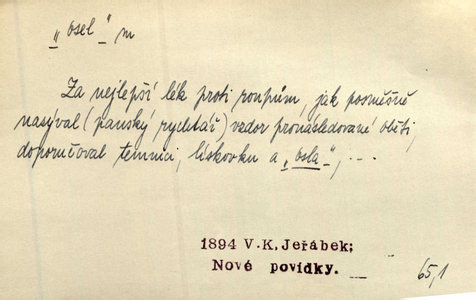 „osel“ m
Za nejlepší lék proti roupům, jak posměšně
nazýval (panský rychtář) vzdor pronásledované oběti,
doporučoval temnici, lískovku a „osla“, ...
1894 V.K.Jeřábek;
Nové povídky. 65,1